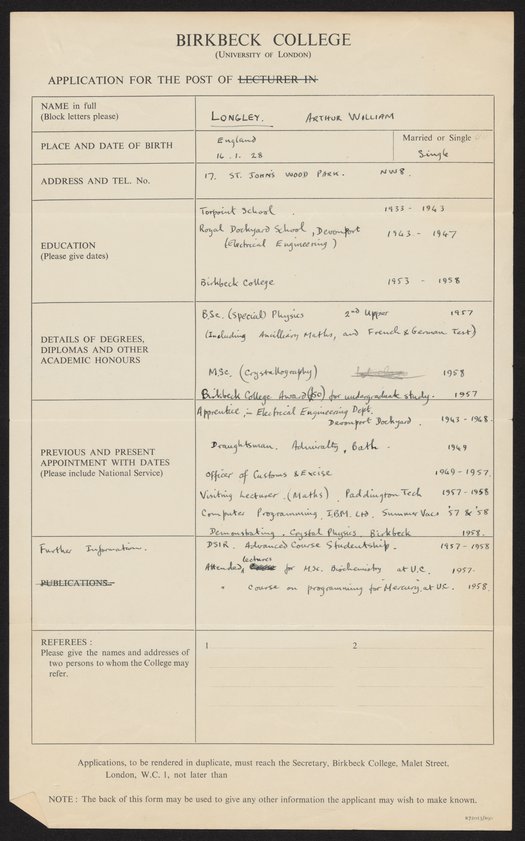 BIRKBECK COLLEGE
(UNIVERSITY OF LONDON)
APPLICATION FOR THE POST OF LECTURER IN
NAME in full
(Block letters please)
LONGLEY. ARTHUR WILLIAM
PLACE AND DATE OF BIRTH
England
16. 1. 28
Married or Single
Single
ADDRESS AND TEL. No.
17. ST. JOHN'S WOOD PARK. NW8.
EDUCATION
(Please give dates)
Torpoint School . 1933 - 1943
Royal Dockyard School, Devonport 1943 - 1947
(Electrical Engineering)
Birkbeck College 1953 - 1958
DETAILS OF DEGREES,
DIPLOMAS AND OTHER
ACADEMIC HONOURS
B.Sc. (Special) Physics 2nd Upper 1957
(Including Ancilliary Maths, and French & German Test)
M.Sc. (Crystallography) 1958
Birkbeck College Award (£50) for undergraduate study. 1957
PREVIOUS AND PRESENT
APPOINTMENT WITH DATES
(Please include National Service)
Apprentice, in Electrical Engineering Dept.
Devonport Dockyard. 1943-1948.
Draughtsman. Admiralty, Bath. 1949
Officer of Customs & Excise 1949-1957
Visiting Lecturer. (Maths) Paddington Tech 1957-1958
Computer Programming. I.B.M. Ltd. Summer Vacs '57 & '58
Demonstrating. Crystal Physics. Birkbeck 1958.
Further Information.
PUBLICATIONS.
DSIR. Advanced Course Studentship. 1957-1958
Attended lectures for M.Sc. Biochemistry at U.C. 1957.
" course on programming for Mercury, at UC. 1958.
REFEREES :
Please give the names and addresses of
two persons to whom the College may
refer.
1
2
Applications, to be rendered in duplicate, must reach the Secretary, Birkbeck College, Malet Street,
London, W.C. 1, not later than
NOTE : The back of this form may be used to give any other information the applicant may wish to make known.